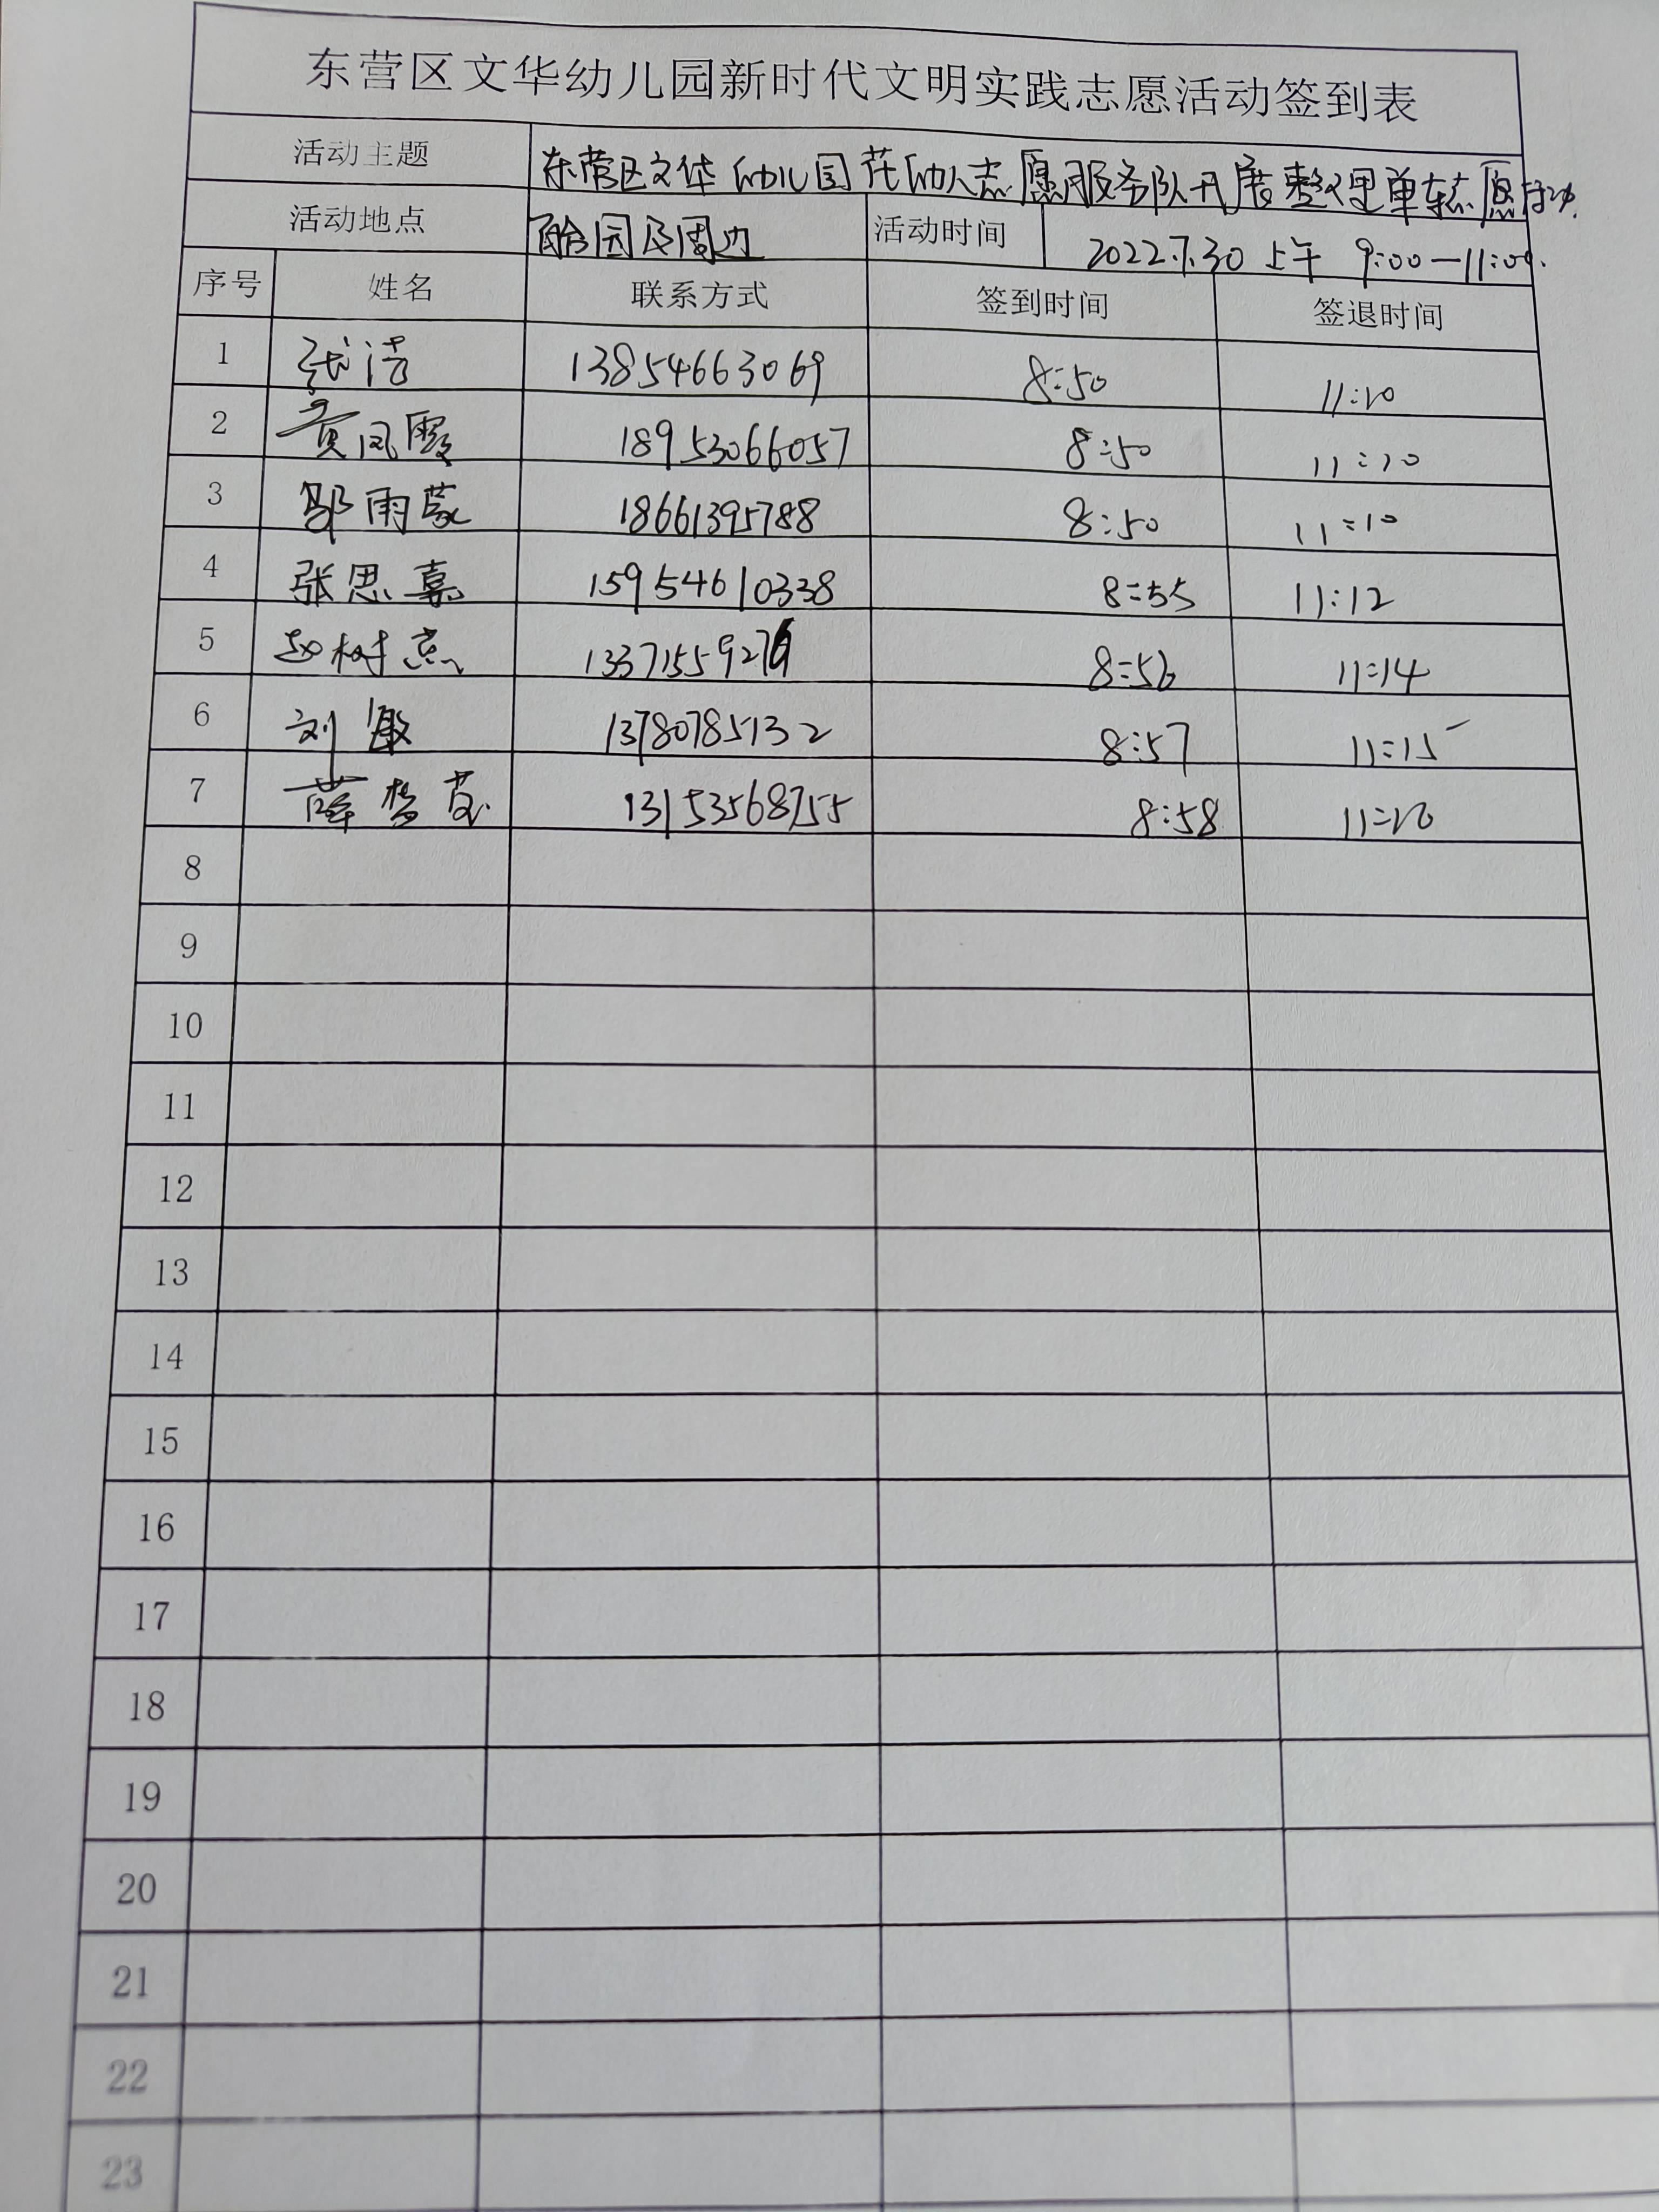 东营区文华幼儿园新时代文明实践志愿活动签到表
活动主题 东营区文华幼儿园花幼儿志愿服务队开展整理单车志愿活动.
活动地点 园及周边 活动时间 2022.7.30 上午 9:00—11:00.
序号 姓名 联系方式 签到时间 签退时间
1 张洁 13854663069 8:50 11:10
2 黄凤霞 18953066057 8:50 11:10
3 邹雨蒙 18661395788 8:50 11:10
4 张思嘉 15954610338 8:55 11:12
5 赵树杰 8:56 11:14
6 刘敏 13780785132 8:57 11:15
7 薛梦茹 13153568755 8:58 11:20
8
9
10
11
12
13
14
15
16
17
18
19
20
21
22
23